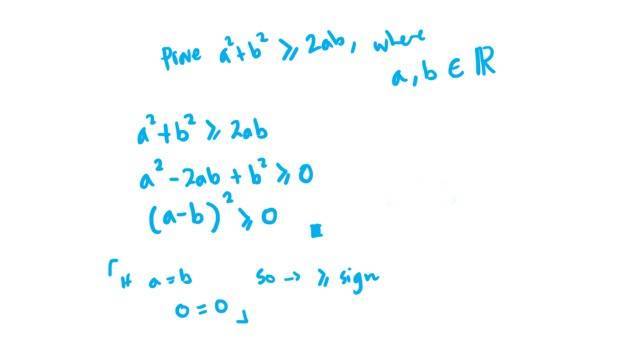 Prove a²+b² ⩾ 2ab, where
a, b ∈ ℝ
a²+b² ⩾ 2ab
a² - 2ab + b² ⩾ 0
(a-b)² ⩾ 0 ■
「If a=b so → ⩾ sign
0=0」